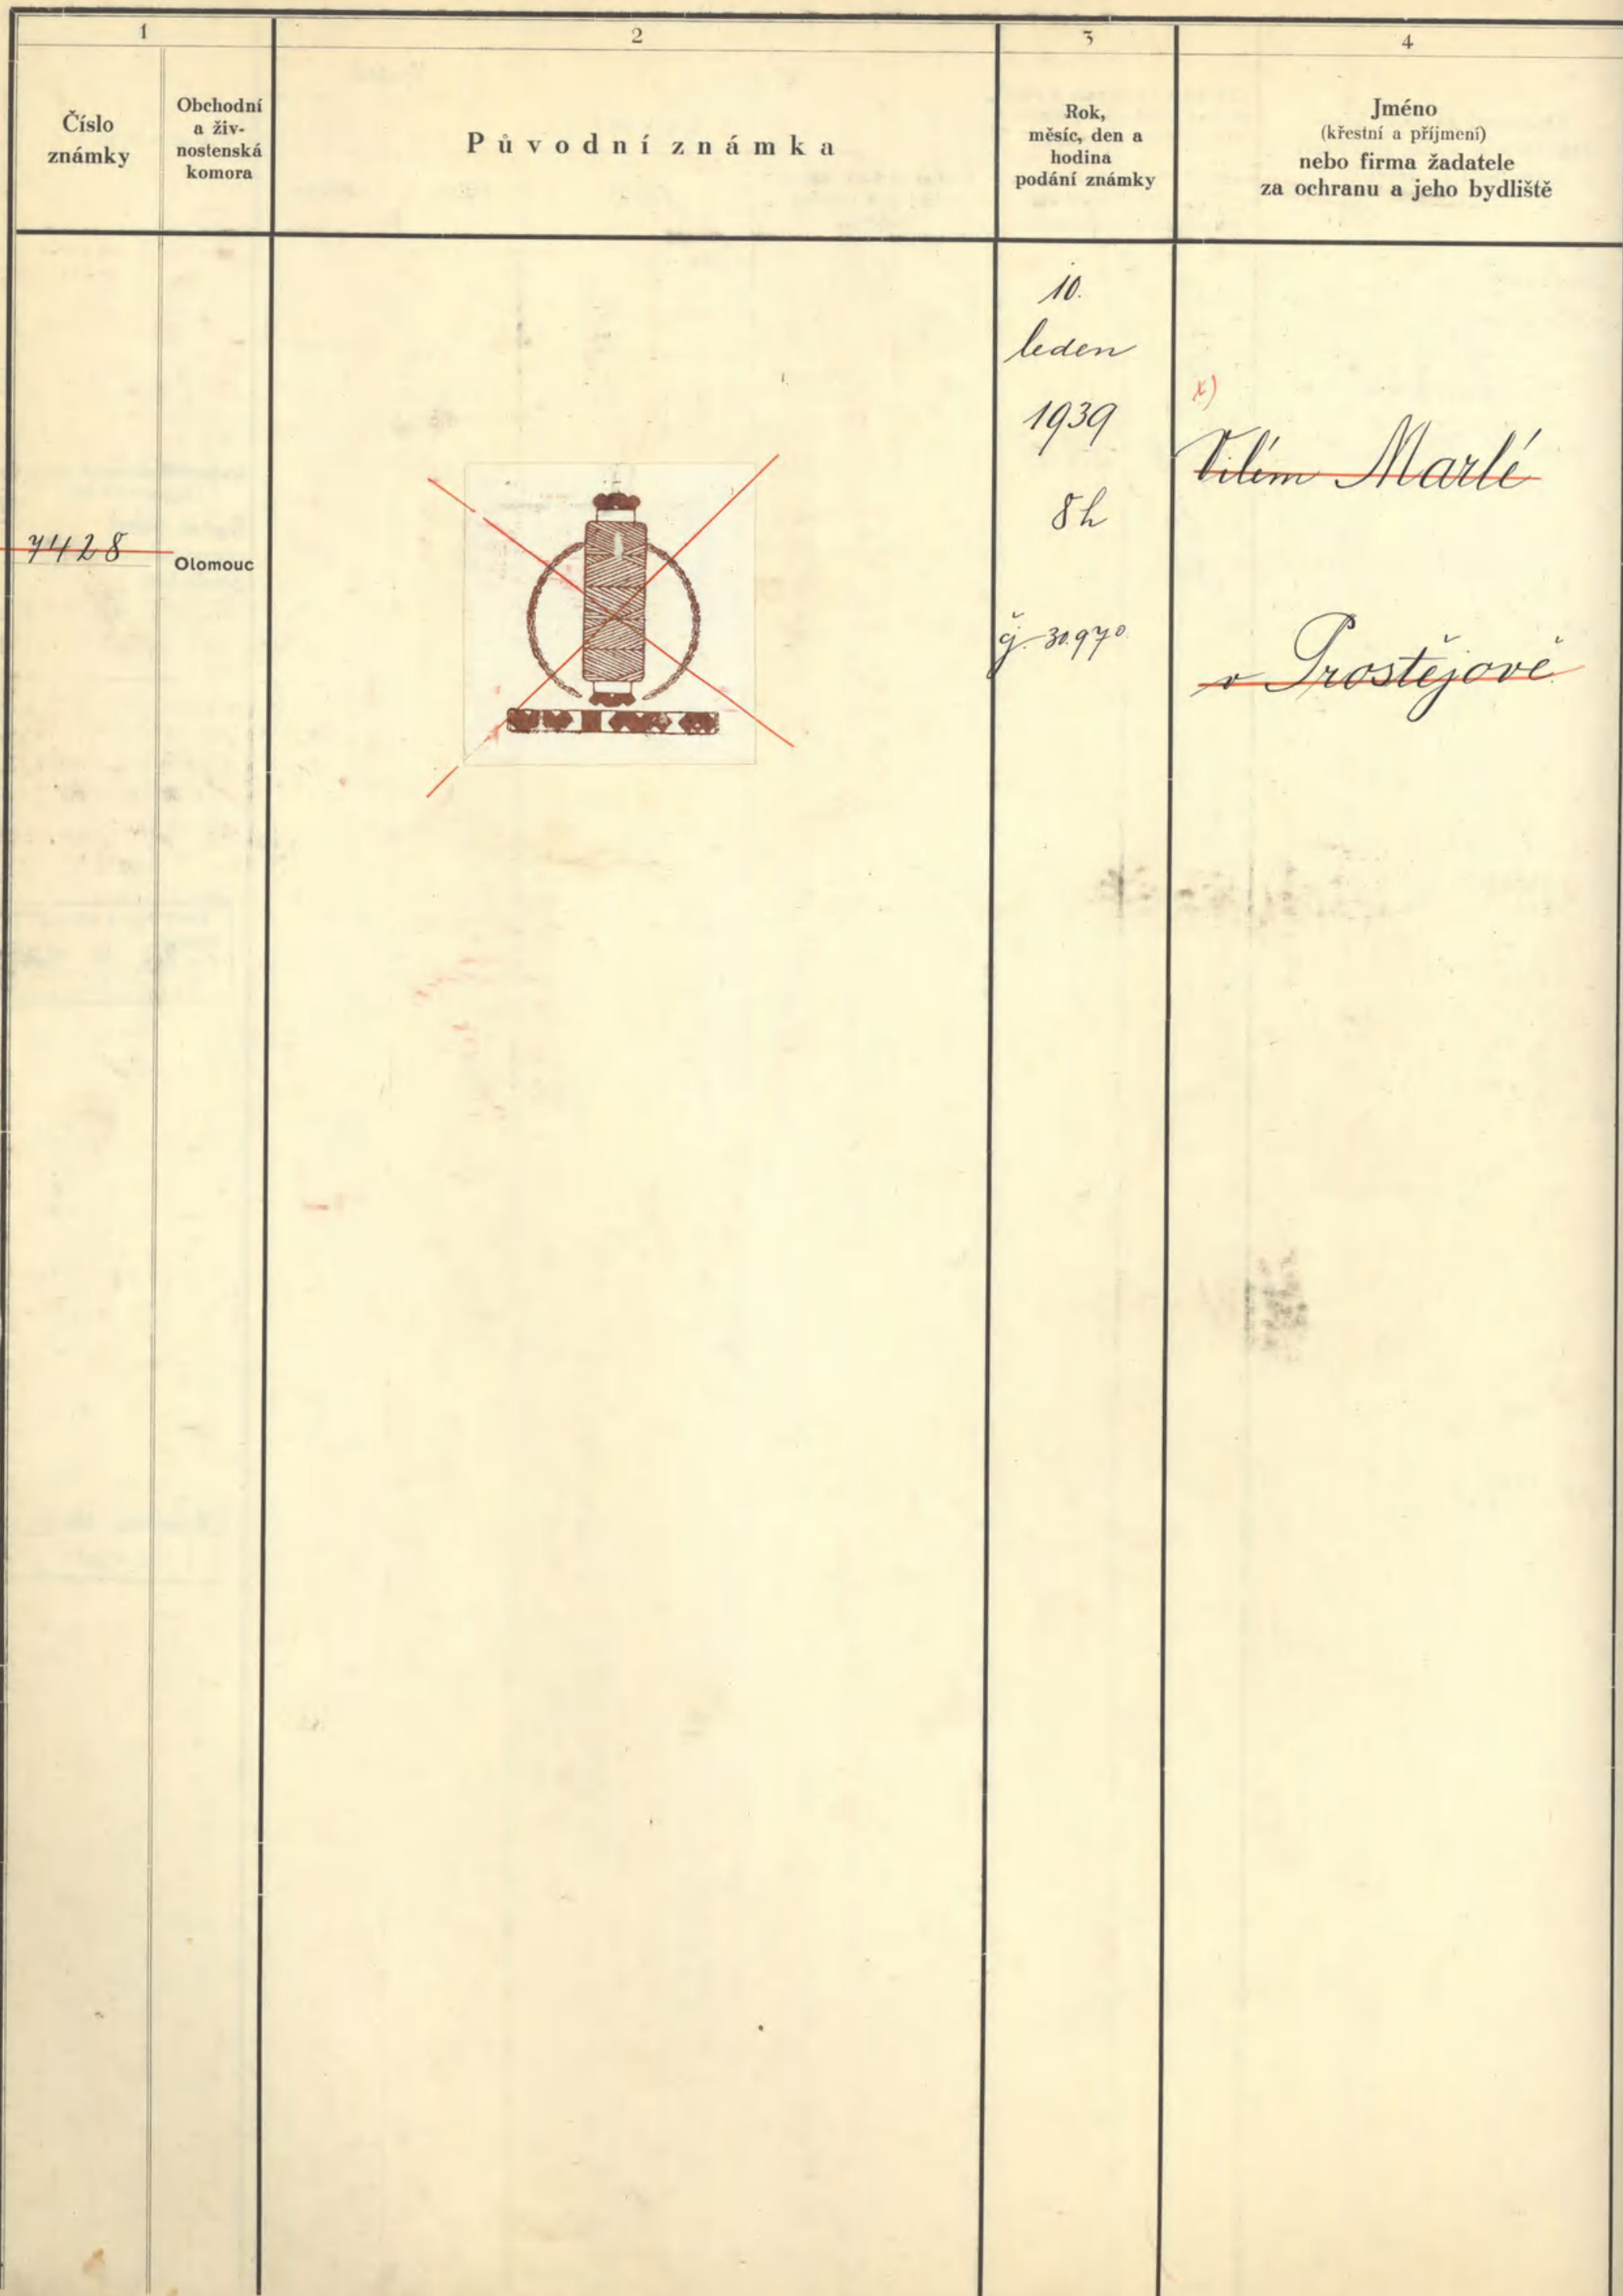 1
2
3
4
Číslo
známky
Obchodní
a živ-
nostenská
komora
Původní známka
Rok,
měsíc, den a
hodina
podání známky
Jméno
(křestní a příjmení)
nebo firma žadatele
za ochranu a jeho bydliště
7428
Olomouc
10.
leden
1939
8 h
čj. 30.970.
x)
Vilém Marlé
v Prostějově